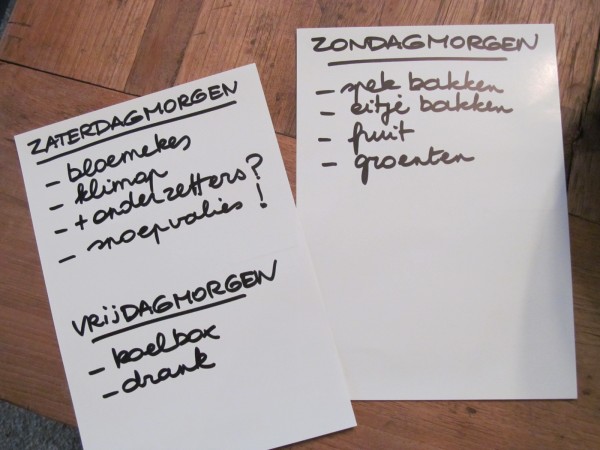 ZATERDAGMORGEN
- bloemekes
- klimop
- + onderzetters?
- snoepvalies!
VRIJDAGMORGEN
- koelbox
- drank
ZONDAGMORGEN
- spek bakken
- eitje bakken
- fruit
- groenten